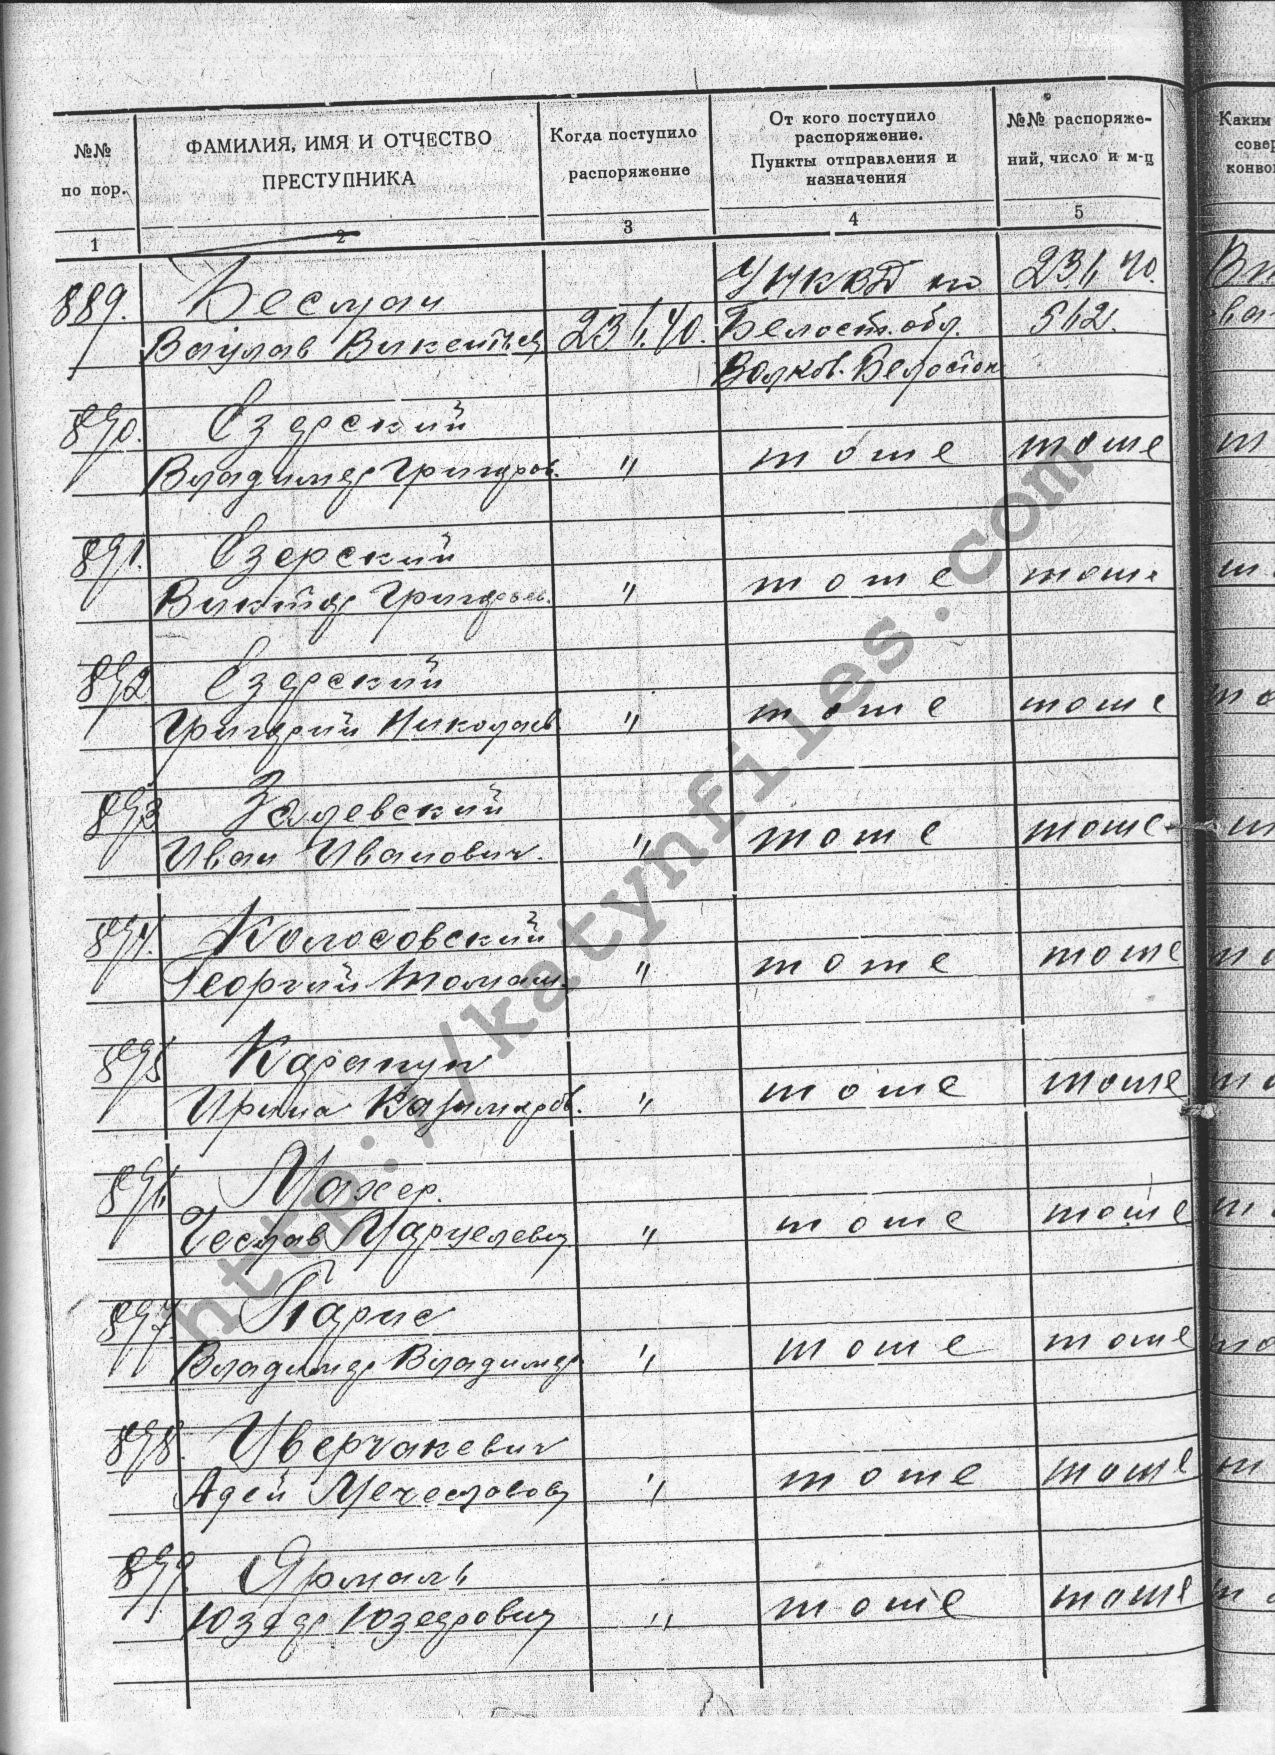 №№ по пор.
ФАМИЛИЯ, ИМЯ И ОТЧЕСТВО
ПРЕСТУПНИКА
Когда поступило
распоряжение
От кого поступило
распоряжение.
Пункты отправления и
назначения
№№ распоряже-
ний, число и м-ц
Каким
совер
конвой
1 2 3 4 5
889. Бесман УНКВД по 23/I 40.
Вацлав Викентьев 23/I.40. Белост. обл. 512.
Волков. Белосток
890. Езерский
Владимер Григоров. " тоже тоже
891. Езерский
Виктор Григорьев. " тоже тоже
892 Езерский
Григорий Николаев " тоже тоже
893 Залевский
Иван Иванович. " тоже тоже
894. Колосовский
Георгий Томаш. " тоже тоже
895 Карапун
Ирина Казимиров. " тоже тоже
896 Махер.
Чеслав Марцелевич " тоже тоже
897. Парис
Владимер Владимер " тоже тоже
898. Цверчакевич
Адей Мечеславович " тоже тоже
899. Ярмаль
Юзедр Юзедрович " тоже тоже
http://katynfiles.com